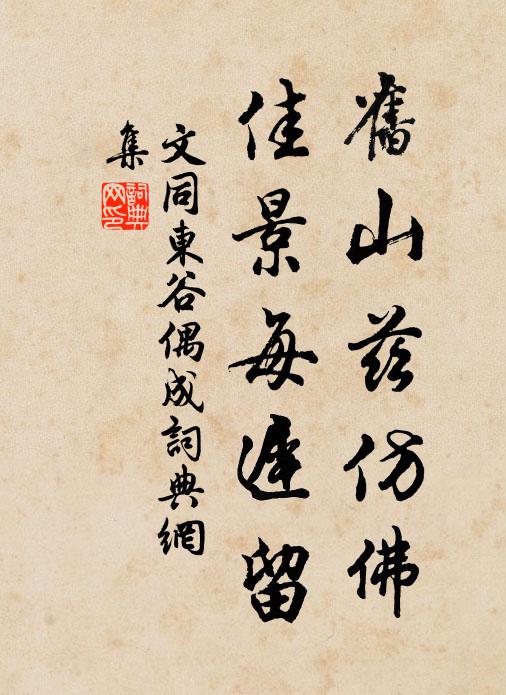 舊山茲仿佛
佳景每遲留
文同東谷偶成詞典網
集
詞典
网印